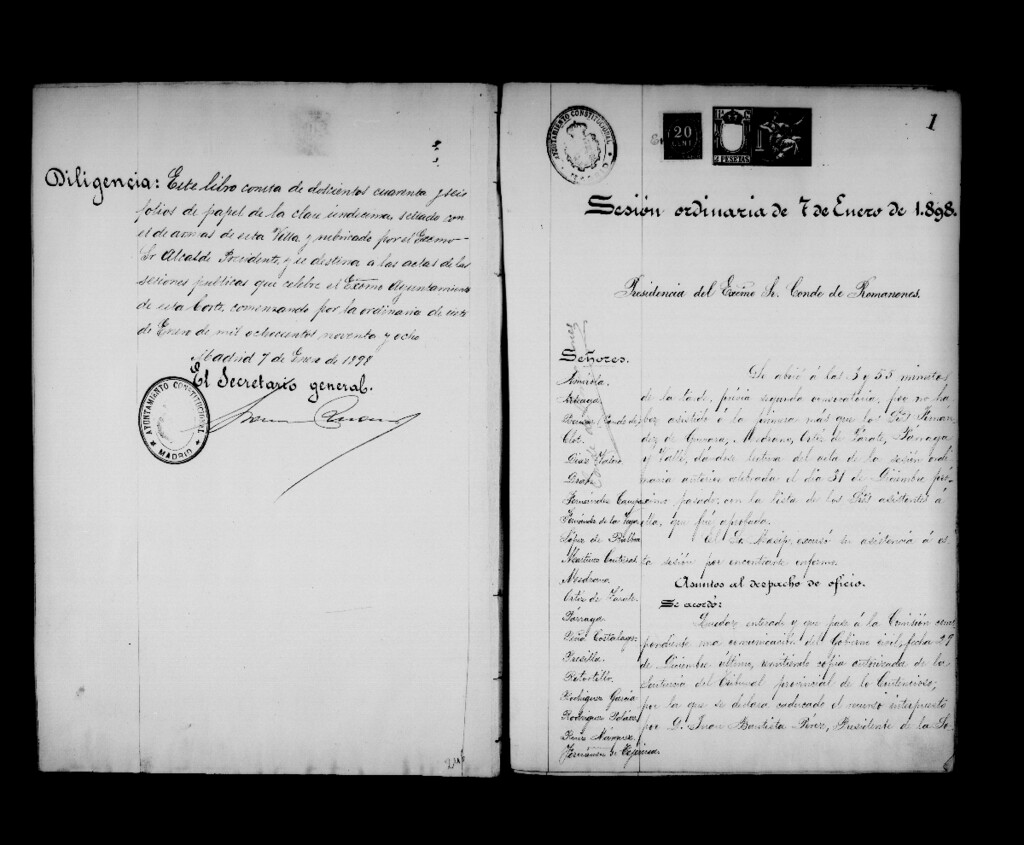 Diligencia: Este libro consta de doscientos cuarenta y seis
folios de papel de la clase undecima, sellado con
el de armas de esta Villa y rubricado por el Excmo
Sr Alcalde Presidente, y se destina a las actas de las
sesiones publicas que celebre el Excmo Ayuntamiento
de esta Corte, comenzando por la ordinaria de siete
de Enero de mil ochocientos noventa y ocho
Madrid 7 de Enero de 1898
El Secretario general.
AYUNTAMIENTO CONSTITUCIONAL
MADRID
246
AYUNTAMIENTO CONSTITUCIONAL
20
2 PESETAS
1
Sesión ordinaria de 7 de Enero de 1.898.
Presidencia del Excmo Sr. Conde de Romanones.
Señores.
Arteaga.
Clot.
Díaz Valero
Fernández Campa
Fernández de la Vega
López de
Martínez Contreras
Medrano.
Ortíz de Zárate.
Párraga.
Peña Costalago.
Presilla.
Retortillo.
Rodríguez García
Rodríguez Peláez.
Ruiz Márquez.
Fernández de
Se abrió á las 3 y 55 minutos
de la tarde, prévia segunda convocatoria, por no ha-
ber asistido á la primera más que los Sres Fernán-
dez de Guevara, Medrano, Ortíz de Zárate, Párraga
y Valle, dándose lectura del acta de la sesión ordi-
naria anterior celebrada el día 31 de Diciembre pró-
ximo pasado, con la lista de los Sres asistentes á
ella, que fué aprobada.
El Sr. Masip, excusó su asistencia á es-
ta sesión por encontrarse enfermo.
Asuntos al despacho de oficio.
Se acordó:
Quedar enterado y que pase á la Comisión corres-
pondiente una comunicación del Gobierno civil, fecha 29
de Diciembre último, remitiendo copia autorizada de la
sentencia del Tribunal provincial de lo Contencioso,
por la que se declara caducado el recurso interpuesto
por D. Juan Bautista Pérez, Presidente de la So-